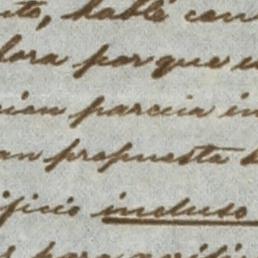 to, hablé con
lora por que
cien parcia in
an propuesta
ificio incluso
para